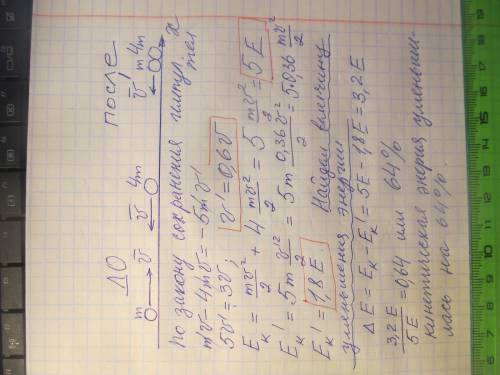 ДО после
m v̄ v̄ 4m v̄' m 4m x
по закону сохранения импул. тел
mv-4mv=-5mv'
5v'=3v; v'=0,6v
Eк = mv²/2 + 4 mv²/2 = 5 mv²/2 = 5E
Eк' = 5m v'²/2 = 5m 0,36v²/2 = 5·0,36 mv²/2
Eк' = 1,8E Найдём величину
уменьшения энергии
ΔE = Eк - Eк' = 5E - 1,8E = 3,2E
3,2E/5E = 0,64 или 64%
кинетическая энергия уменьши-
лась на 64%.